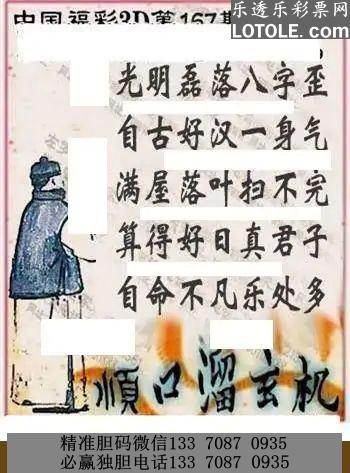 中国福彩3D第167期
乐透乐彩票网
LOTOLE.COM
光明磊落八字歪
自古好汉一身气
满屋落叶扫不完
算得好日真君子
自命不凡乐处多
順口溜玄机
精准胆码微信133 7087 0935
必赢独胆电话133 7087 0935